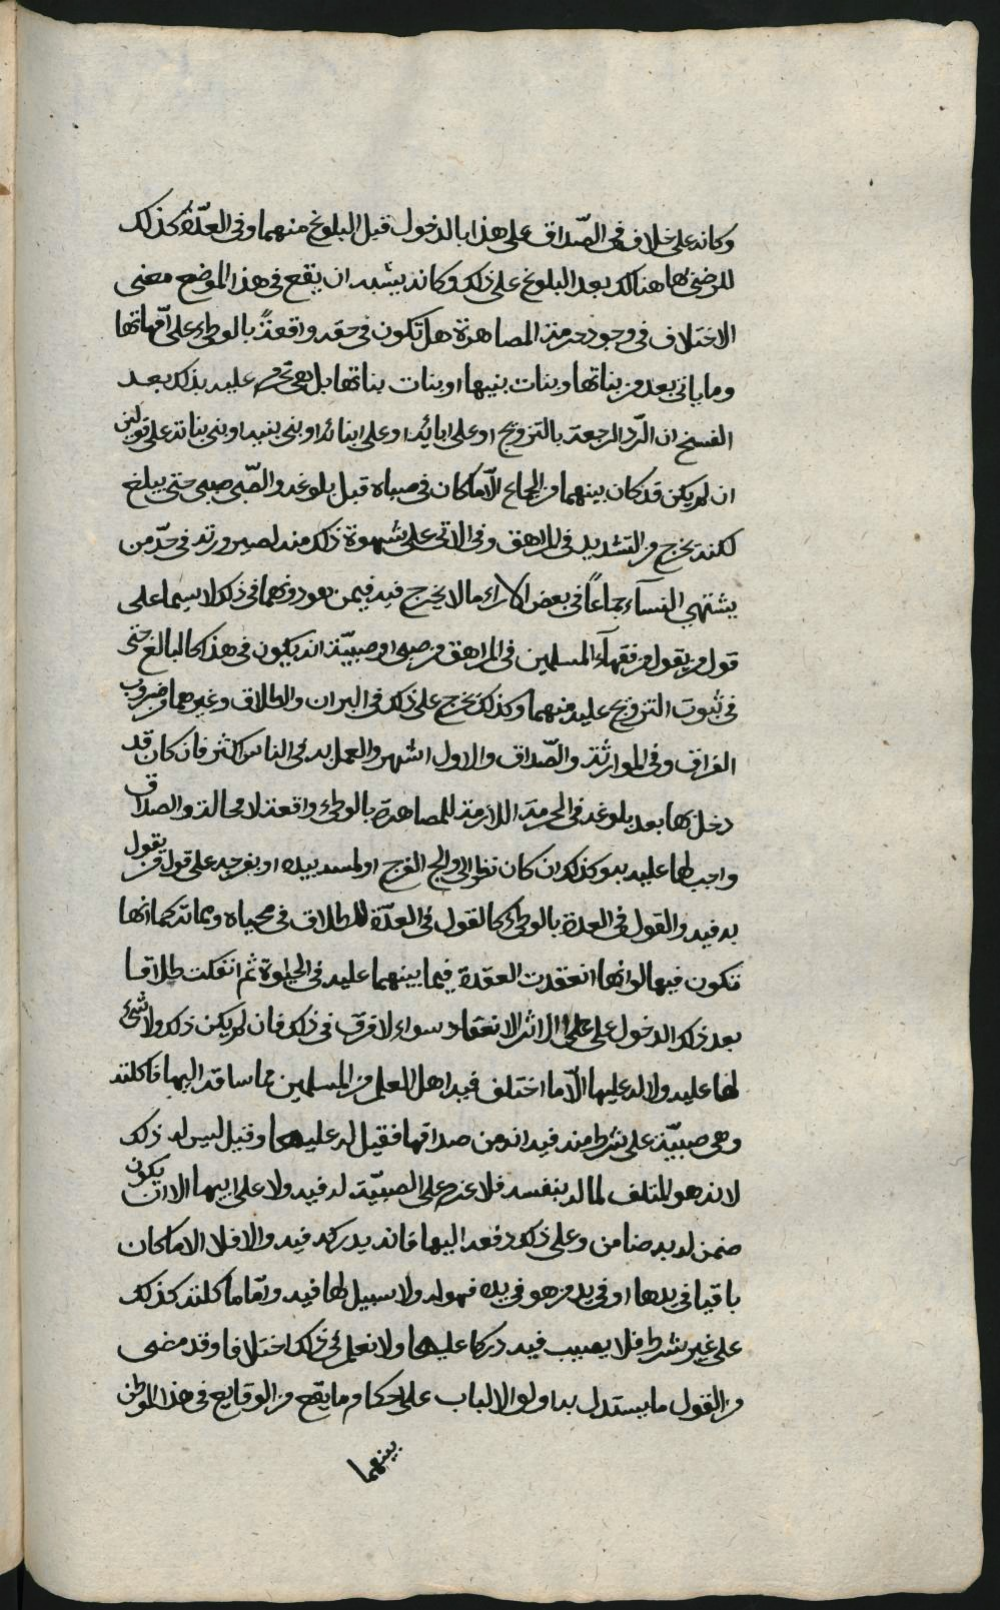 وكانه على خلاف في الصّداق على هذا بالدخول قبل البلوغ منهما وفي العدّة كذلك
للرضى بها هنالك بعد البلوغ على ذلك وكانه يشبه ان يقع في هذا الموضع معنى
الاختلاف في وجود حرمة المصاهرة هل تكون في حقه واقعة بالوطئ على امّهاتها
وما ياتي بعد من بناتها وبنات بنيها او بنات بناتها بل هي تحرم عليه بذلك بعد
الفسخ ان الرّد الرجعة بالتزويج او على ابائه او على ابنائه او بني بنيه او بني بناته على قولين
ان لم يكن قد كان بينهما من الجماع الّا ما كان في صباه قبل بلوغه والصّبي صبي حتى يبلغ
لكنه يخرج من التشديد في المراهق وفي الاتي على شهوة ذلك منه لصيرورته في حدّ من
يشتهي النسآء جماعاً في بعض الاراء ما لا يخرج فيه فيمن هو دونهما في ذلك لا سيما على
قول من يقول من فقهآء المسلمين في المراهق من صبي او صبيّة انه يكون في هذا كالبالغ حتى
في ثبوت التزويج عليه منهما وكذلك يخرج على ذلك في البران والطلاق وغيرهما من ضروب
الفراق وفي الموارثة والصّداق والاول اشهر والعمل به في الناس اكثر فان كان قد
دخل بها بعد بلوغه في الحرمة اللازمة للمصاهرة بالوطئ واقعة لا محالة والصداق
واجب لها عليه به وكذلك ان كان نظر الى والج الفرج او لمسه بيده او بفرجه على قول من يقول
به فيه والقول في العدة بالوطئ كالقول في العدّة للطلاق في محياه ومماته كما انها
تكون فيها لو انها انعقدت العقدة فيما بينهما عليه في الحيوة ثم انفكت طلاقا
بعد ذلك الدخول على على الاثر الانعقاد سواء لا فرق في ذلك فان لم يكن ذلك ولا شئ
لها عليه ولا له عليها الّا ما اختلف فيه اهل العلم من المسلمين مما ساقه اليها فاكلته
وهي صبيّة على شرط منه فيه انه من صداقها فقيل له عليها وقيل ليس له ذلك
لانه هو المتلف لماله بنفسه فلا غرم على الصبيّة له فيه ولا على ابيها الا ان يكون
ضمن له به ضامن وعلى ذلك دفعه اليها فانه يدركه فيه والا فلا الا ما كان
باقيا في يدها او في يد من هو في يده فهو له ولا سبيل لها فيه وامّا ما كلته كذلك
على غير شرط فلا يصيب فيه دركا عليها ولا نعلم في ذلك اختلافا وقد مضى
من القول ما يستدل به اولو الالباب على احكام ما يقع من الوقايع في هذا الموطن
بينهما